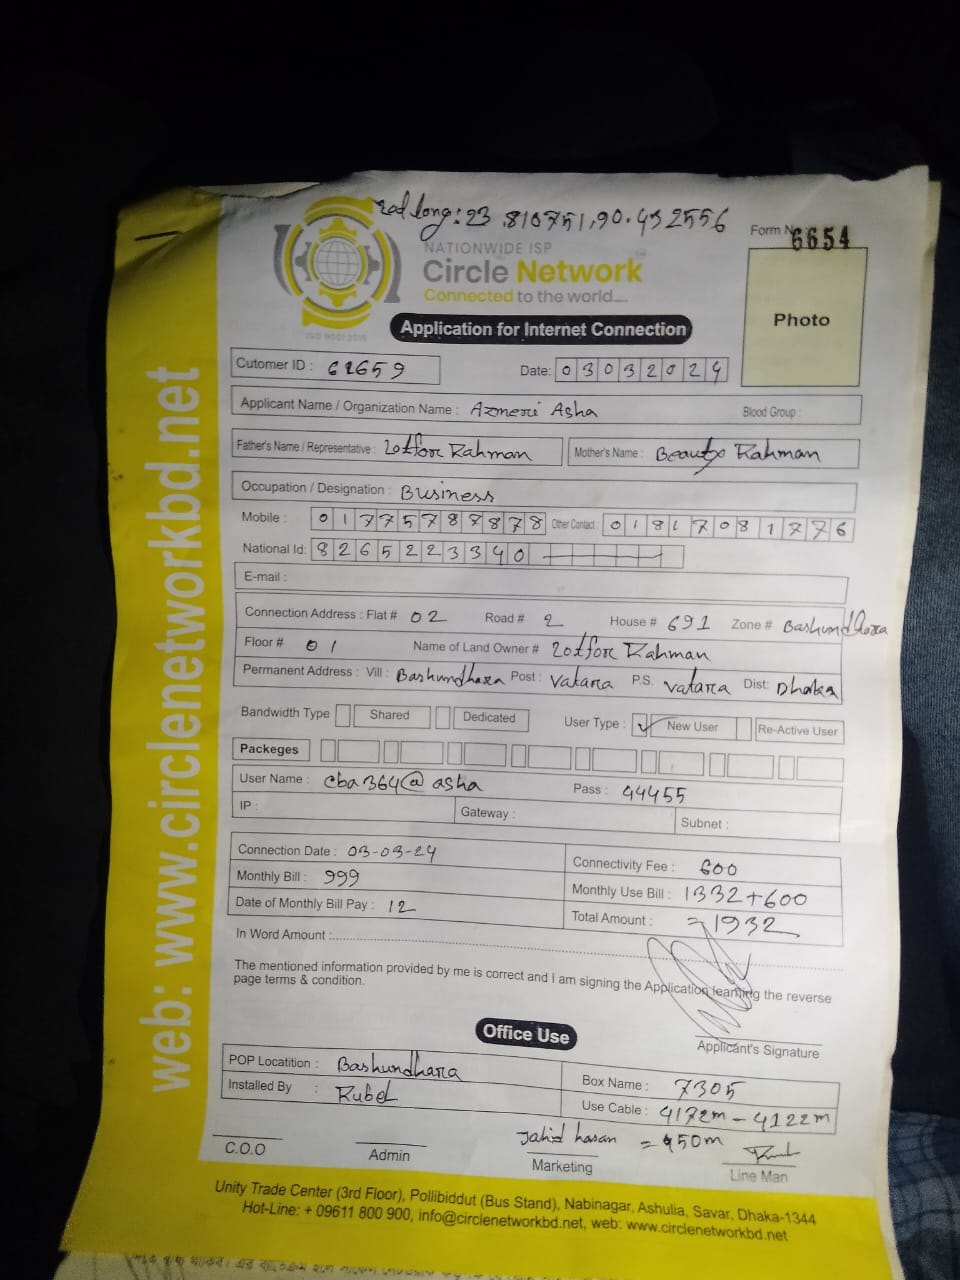 long: 23.810751,90.452556
NATIONWIDE ISP
Circle Network
Connected to the world....
ISO 9001:2015
Form No 6654
Photo
Application for Internet Connection
Cutomer ID : 61659
Date: 03032024
Applicant Name / Organization Name : Azmeri Asha Blood Group :
Father's Name / Representative : Lotfor Rahman Mother's Name : Beauty Rahman
Occupation / Designation : Business
Mobile : 01775787878 Other Contact : 01817081776
National Id: 8265223340
E-mail :
Connection Address : Flat # 02 Road # 2 House # 691 Zone # Bashundhara
Floor # 01 Name of Land Owner # Lotfor Rahman
Permanent Address : Vill : Bashundhara Post : Vatara P.S. Vatara Dist: Dhaka
Bandwidth Type Shared Dedicated User Type : New User Re-Active User
Packeges
User Name : cba364@asha Pass : 44455
IP : Gateway : Subnet :
Connection Date : 03-03-24 Connectivity Fee : 600
Monthly Bill : 999 Monthly Use Bill : 1332+600
Date of Monthly Bill Pay : 12 Total Amount : =1932
In Word Amount :
The mentioned information provided by me is correct and I am signing the Application learning the reverse
page terms & condition.
Applicant's Signature
Office Use
POP Locatition : Bashundhara Box Name : 7305
Installed By : Rubel Use Cable : 4172m - 4122m
Jahid hasan = 450m
C.O.O Admin Marketing Line Man
Unity Trade Center (3rd Floor), Pollibiddut (Bus Stand), Nabinagar, Ashulia, Savar, Dhaka-1344
Hot-Line: + 09611 800 900, info@circlenetworkbd.net, web: www.circlenetworkbd.net
web: www.circlenetworkbd.net